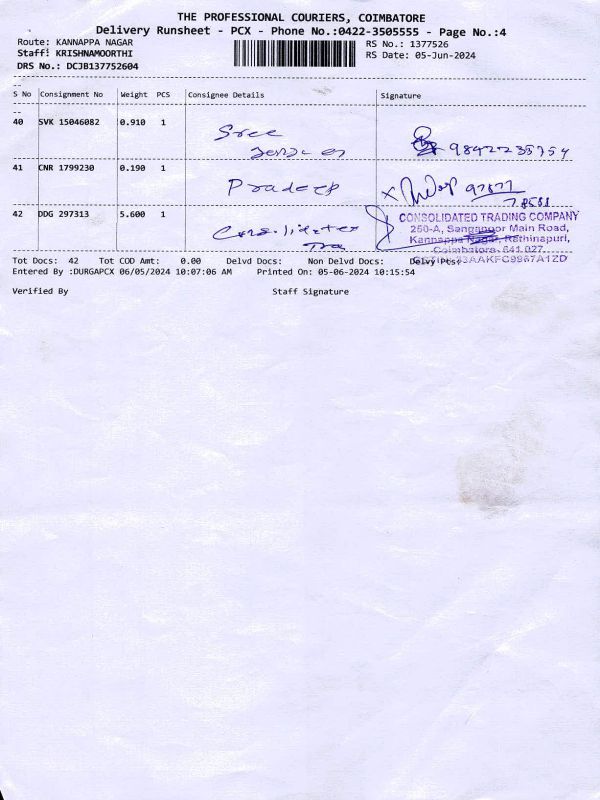 THE PROFESSIONAL COURIERS, COIMBATORE
Delivery Runsheet - PCX - Phone No.:0422-3505555 - Page No.:4
Route: KANNAPPA NAGAR
RS No.: 1377526
Staff: KRISHNAMOORTHI
RS Date: 05-Jun-2024
DRS No.: DCJB137752604
S No Consignment No Weight PCS Consignee Details Signature
40 SVK 15046082 0.910 1 Sree
9842235754
41 CNR 1799230 0.190 1 Pradeep
42 DDG 297313 5.600 1 Consolidated
Tra
CONSOLIDATED TRADING COMPANY
250-A, Sanganoor Main Road,
Kannappa Nagar, Rathinapuri,
Coimbatore. 641 027.
Tot Docs: 42 Tot COD Amt: 0.00 Delvd Docs: Non Delvd Docs: Delvy Pts:
Entered By :DURGAPCX 06/05/2024 10:07:06 AM Printed On: 05-06-2024 10:15:54
Verified By Staff Signature